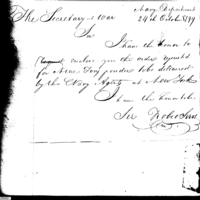 Navy Department
24th Octob. 1799
The Secretary of War
Sir
I have the honor to
enclose you the order
for Navy powder to be delivered
by the Navy Agents at New York
I have the honor to be
Sir